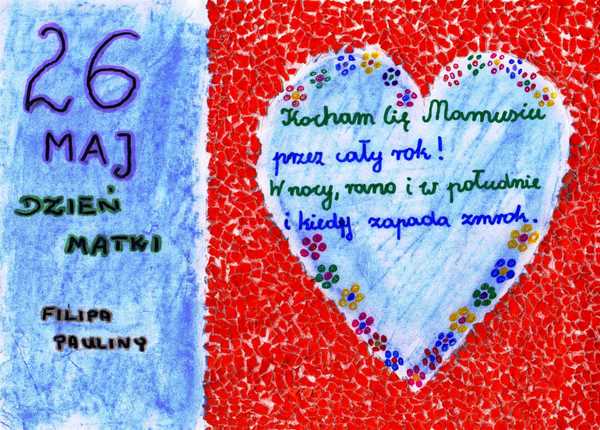 26
MAJ
DZIEŃ
MATKI
FILIPA
PAULINY
Kocham Cię Mamusiu
przez cały rok!
W nocy, rano i w południe
i kiedy zapada zmrok.